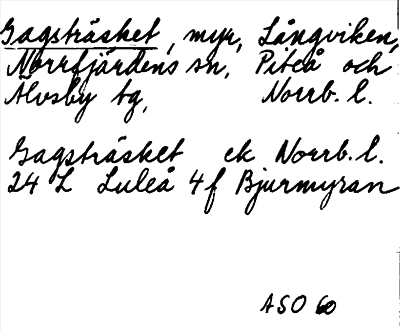 Gagsträsket, myr, Långviken,
Norrfjärdens sn, Piteå och
Älvsby tg, Norrb. l.
Gagsträsket ek Norrb. l.
24 L Luleå 4f Bjurmyran
ASO 60